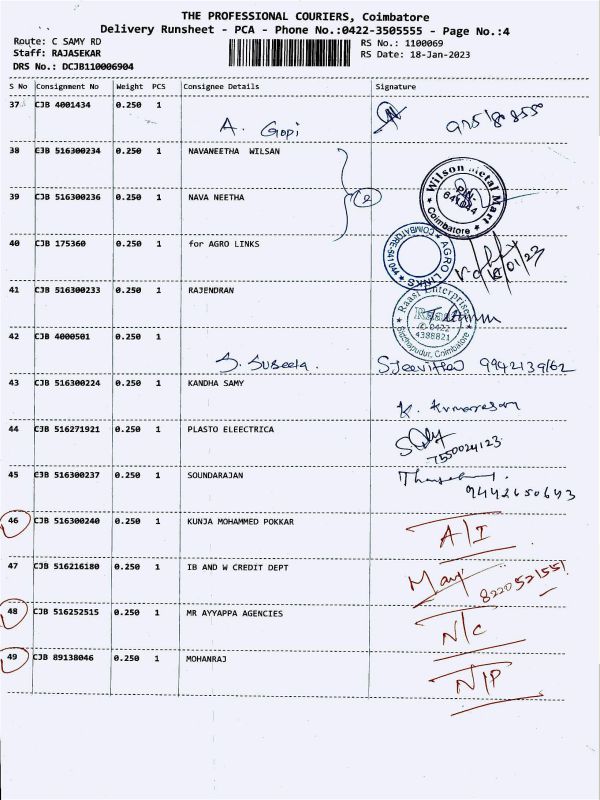 THE PROFESSIONAL COURIERS, Coimbatore
Delivery Runsheet - PCA - Phone No.:0422-3505555 - Page No.:4
Route: C SAMY RD RS No.: 1100069
Staff: RAJASEKAR RS Date: 18-Jan-2023
DRS No.: DCJB110006904
S No Consignment No Weight PCS Consignee Details Signature
37 CJB 4001434 0.250 1
A. Gopi
38 CJB 516300234 0.250 1 NAVANEETHA WILSAN
Wilson Metal Mart Coimbatore
39 CJB 516300236 0.250 1 NAVA NEETHA
2
40 CJB 175360 0.250 1 for AGRO LINKS
AGRO LINKS COIMBATORE-641044
18/01/23
41 CJB 516300233 0.250 1 RAJENDRAN
Raasi Enterprise
Raasi
0422
4388821
Coimbatore
42 CJB 4000501 0.250 1
S. Suseela. 9942139162
43 CJB 516300224 0.250 1 KANDHA SAMY
K. Kumaresan
44 CJB 516271921 0.250 1 PLASTO ELEECTRICA
7550024123
45 CJB 516300237 0.250 1 SOUNDARAJAN
9442650643
46 CJB 516300240 0.250 1 KUNJA MOHAMMED POKKAR
A/I
47 CJB 516216180 0.250 1 IB AND W CREDIT DEPT
8220521551
48 CJB 516252515 0.250 1 MR AYYAPPA AGENCIES
N/C
49 CJB 89138046 0.250 1 MOHANRAJ
N/P